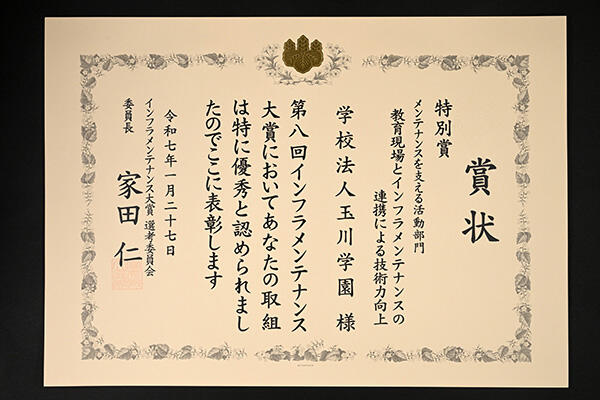 賞状
特別賞
メンテナンスを支える活動部門
教育現場とインフラメンテナンスの
連携による技術力向上
学校法人玉川学園 様
第八回インフラメンテナンス
大賞においてあなたの取組
は特に優秀と認められまし
たのでここに表彰します
令和七年一月二十七日
インフラメンテナンス大賞 選考委員会
委員長 家田 仁